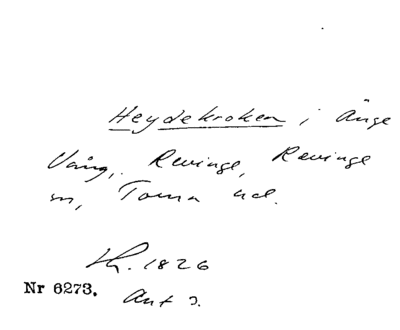 Heydekroken i Änge
Vång, Revinge, Revinge
sn, Torna hd.
Lh. 1826
Nr 6273. Akt 2.